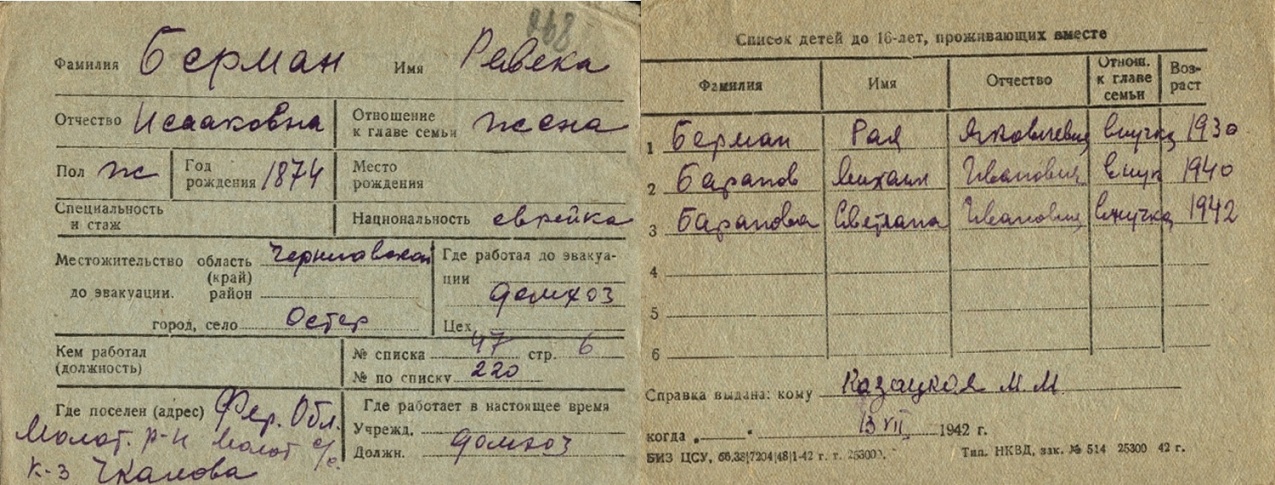 Фамилия Берман Имя Ревека
Отчество Исааковна Отношение к главе семьи жена
Пол ж Год рождения 1874 Место рождения
Специальность и стаж Национальность еврейка
Местожительство до эвакуации. область (край) Черниговской
район
город, село Остер
Где работал до эвакуации домхоз
Цех
Кем работал (должность)
№ списка 47 стр. 6
№ по списку 220
Где поселен (адрес) Фер. Обл.
Молот. р-н Молот с/с.
к-з Чкалова
Где работает в настоящее время
Учрежд. домхоз
Должн.
Список детей до 16-лет, проживающих вместе
Фамилия Имя Отчество Отнош. к главе семьи Возраст
1 Берман Рая Яковлевна внучка 1930
2 Баранов Михаил Иванович внук 1940
3 Баранова Светлана внучка 1942
4
5
6
Справка выдана: кому Казацкая М. М.
когда 13 VII 1942 г.
БИЗ ЦСУ, 66,38|7204|48|1-42 г. т. 253000.
Тип. НКВД, зак. № 514 25300 42 г.